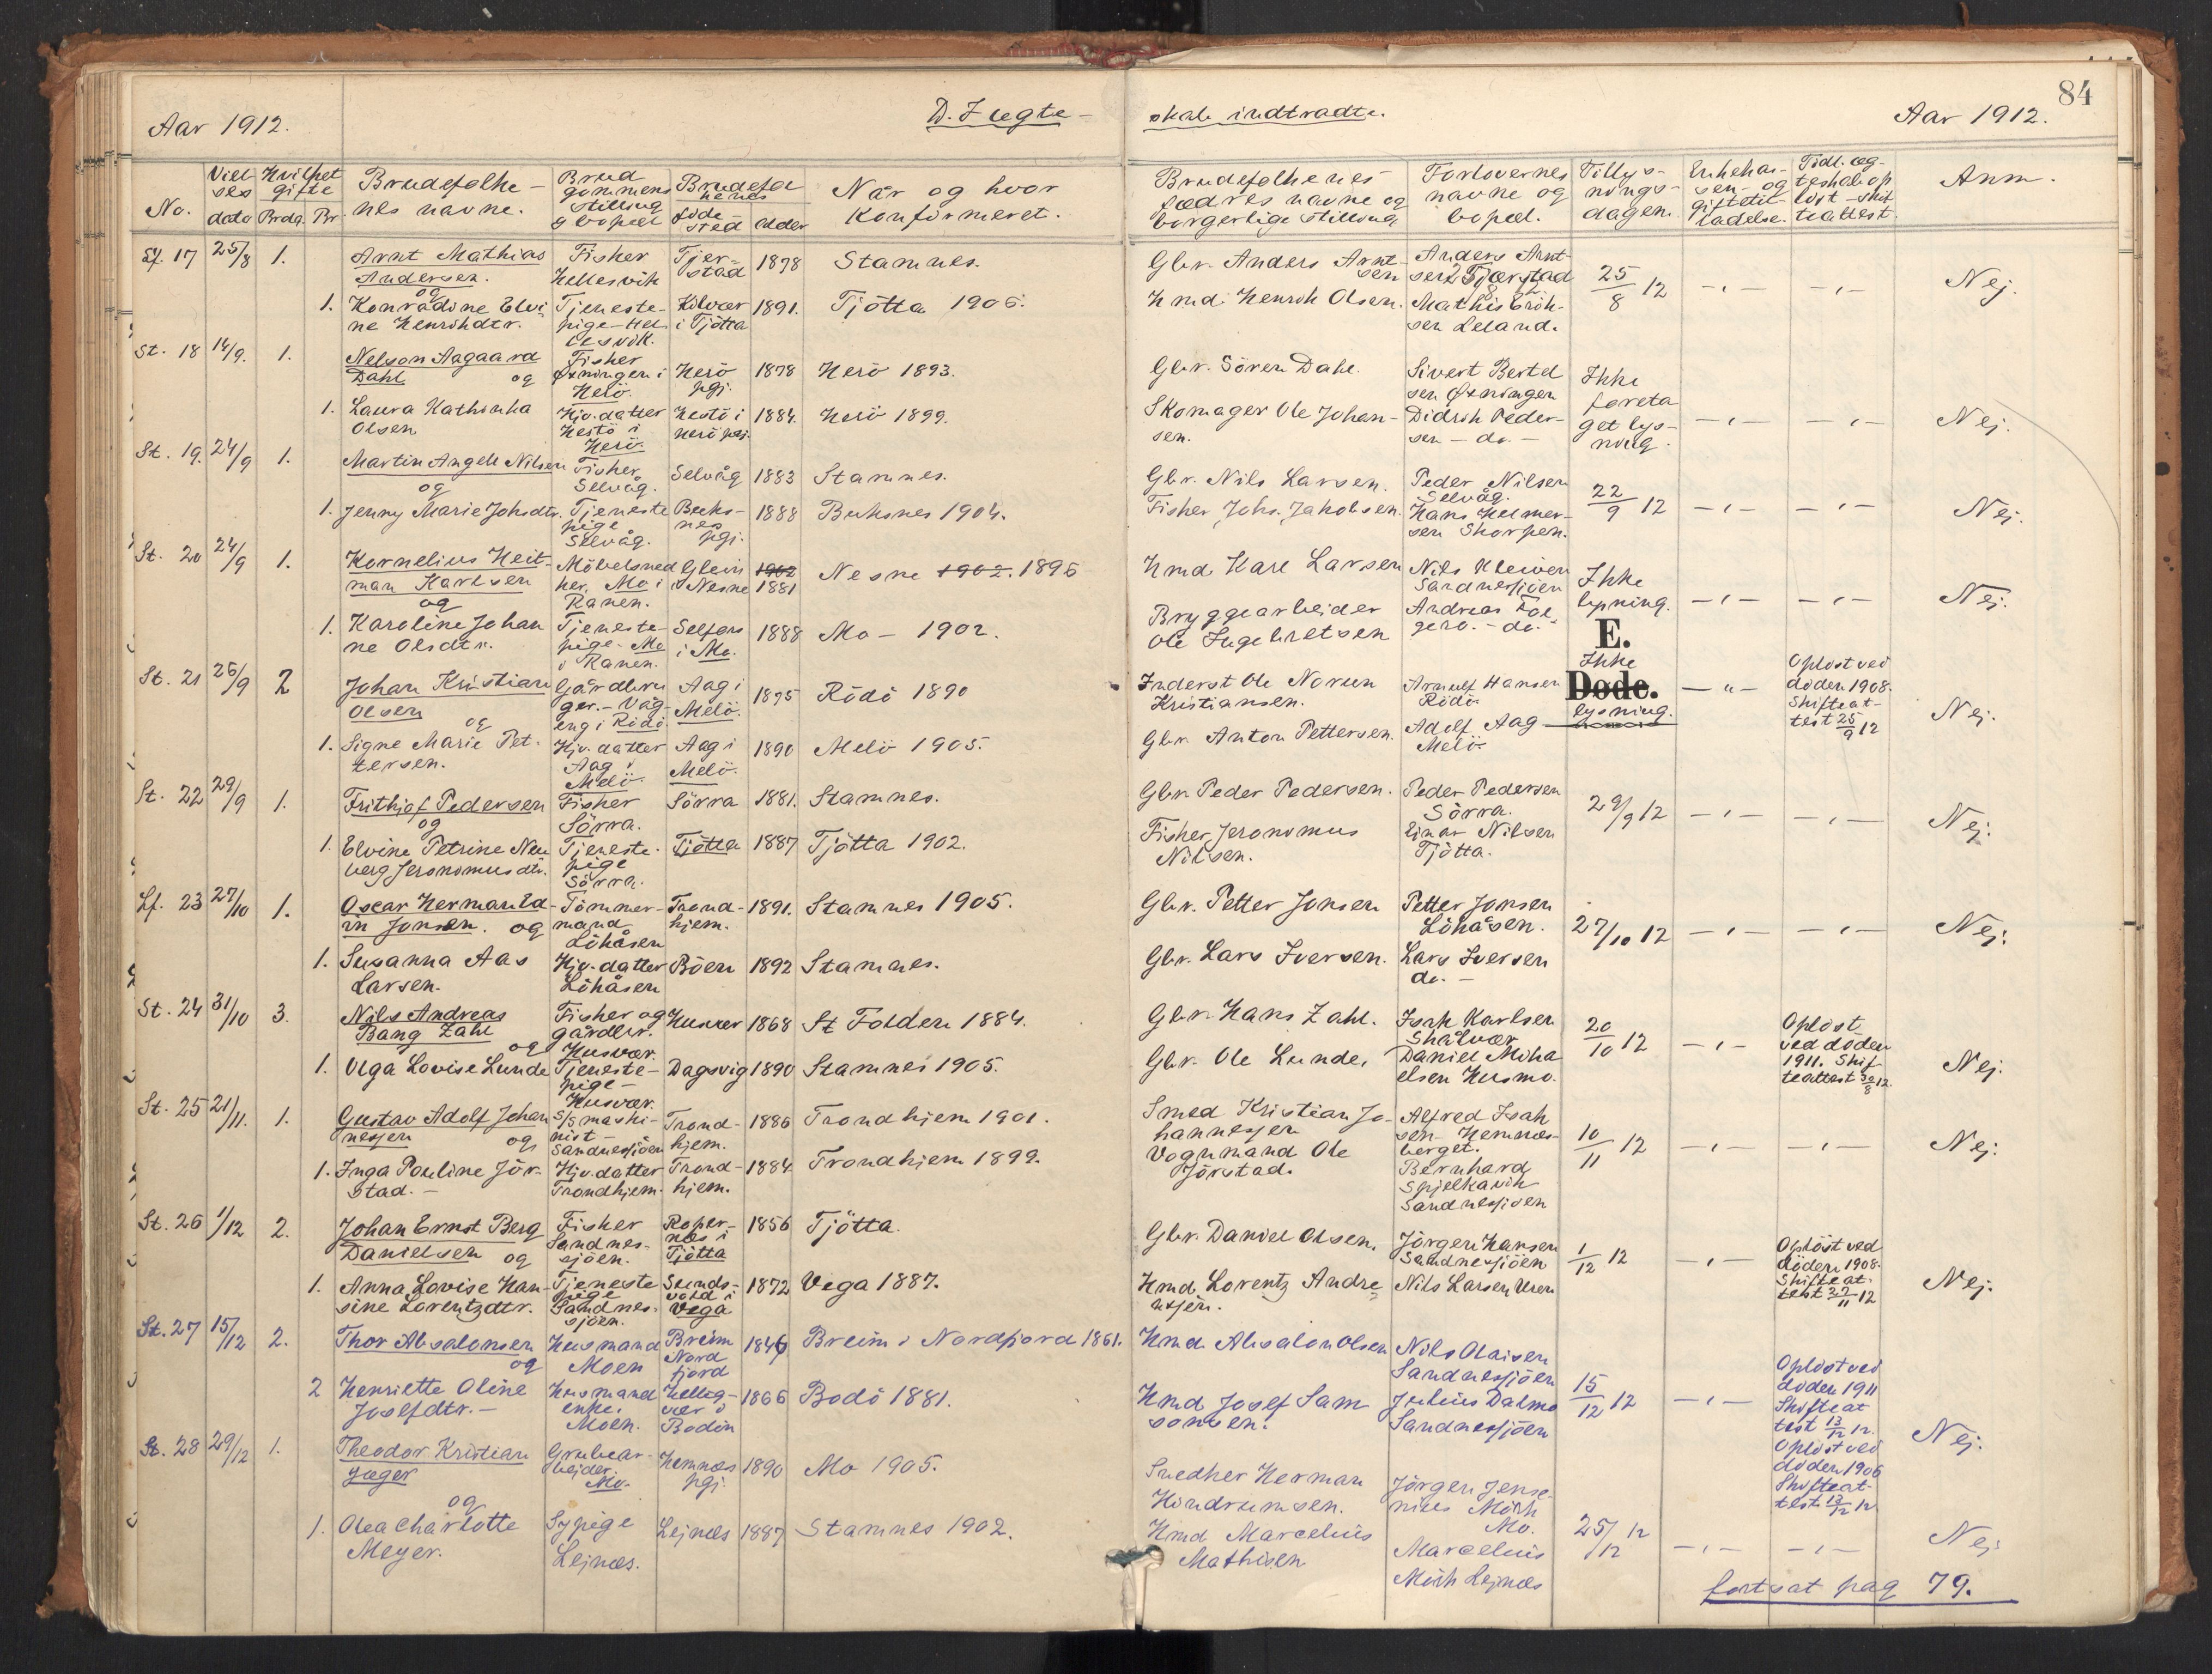 84
Aar 1912.
D. Ægte-
skab indtrådte.
Aar 1912.
No.
Viel
ses
dato
Hvilket
gifte
Brdg. Br.
Brudefolke-
nes navne.
Brud
gommens
stilling
& bopæl
Brudefol
kenes
føde-
sted
alder
Når og hvor
konfirmeret.
Brudefolkenes
fædres navne og
borgerlige stilling
Forlovernes
navne og
bopæl.
Tillys-
nings-
dagen.
Enkehas-
sen- og
giftetil-
ladelse.
Tidl. æg-
teskab op
løst - skif
teattest.
Anm.
Lf. 17 25/8 1. Arnt Mathias
Andersen.
og
Fisker
Hellesvik
Tjer-
stad
1878 Stamnes.
Gbr. Anders Arnt-
sen
Anders Arnt-
sen Tjærstad
25/8 12 -"- -"- Nej.
1. Konradine Elvi
ne Henrikdtr.
Tjeneste-
pige - Hel
lesvik.
Kilvær
i Tjötta
1891. Tjötta 1906.
Hmd. Henrik Olsen.
Mathis Erik-
sen Leland.
St. 18 14/9. 1. Nelson Aagaard
Dahl og
Fisker
Øxningen i
Herö.
Herö
pgj.
1878 Herö 1893.
Gbr. Sören Dahl.
Sivert Bertel
sen Øxningen
Ikke
foreta
get lys-
ning.
-"- -"- Nej.
1. Laura Kathinka
Olsen
Hjv. datter
Hestö i
Herö.
Hestö i
Herö pgj.
1884. Herö 1899.
Skomager Ole Johan-
sen.
Didrik Peder-
sen - do -
St. 19. 24/9 1. Martin Angell Nilsen
og
Fisker
Selvåg.
Selvåg 1883 Stamnes.
Gbr. Nils Larsen.
Peder Nilsen
Selvåg.
22/9 12 -"- -"- Nej.
1. Jenny Marie Johsdtr.
Tjeneste
pige
Selvåg.
Buks-
nes
pgj.
1888 Buksnes 1904.
Fisker Johs. Jakobsen.
Hans Helmer-
sen Skorpen.
St. 20 24/9 1. Kornelius Heit-
man Karlsen
og
Möbelsned
ker, Mo i
Ranen.
Glein
i Nesne
1902
1881
Nesne 1902. 1896
Hmd. Karl Larsen
Nils Kleiven
Sandnessjöen
Ikke
lysning.
-"- -"- Nej.
1. Karoline Johan
ne Olsdtr.
Tjeneste-
pige - Mo
i Ranen.
Selfors
i Mo.
1888 Mo - 1902.
Bryggearbeider
Ole Ingebretsen
Andreas Fol
gerö. - do. -
E.
Døde.
St. 21 26/9 2 Johan Kristian
Olsen
og
Gårdbru
ger. - Våg-
eng i Rödö.
Aag i
Melö.
1875 Rödö 1890
Inderst Ole Norum
Kristiansen.
Arnulf Hansen
Rödö.
Ikke
lysning.
-"-
Oplöst ved
döden 1908.
Skifteat-
test 25/9 12
Nej.
1. Signe Marie Pet-
tersen.
Hjv. datter
Aag i
Melö.
Aag i
Melö.
1890 Melö 1905.
Gbr. Anton Pettersen.
Adolf Aag
Melö.
St. 22 29/9 1. Frithjof Pedersen
og
Fisker
Sörra.
Sörra 1881. Stamnes.
Gbr. Peder Pedersen.
Peder Pedersen
Sörra.
29/9 12 -"- -"- Nej.
1. Elvine Petrine Neu
berg Jeronomusdtr.
Tjeneste-
pige
Sörra.
Tjötta 1887 Tjötta 1902.
Fisker Jeronomus
Nilsen.
Einar Nilsen
Tjötta.
Lf. 23 27/10 1. Oscar Herman Ed-
in Jonsen. og
Tömmer-
mand
Löhåsen
Trond-
hjem.
1891. Stamnes 1905.
Gbr. Petter Jonsen
Petter Jonsen
Löhåsen.
27/10 12 -"- -"- Nej.
1. Susanna Aas
Larsen.
Hjv. datter
Löhåsen
Böen 1892 Stamnes.
Gbr. Lars Iversen.
Lars Iversen
do. -
St. 24 31/10 3. Nils Andreas
Bang Zahl
og
Fisker og
gårdbr.
Husvær.
Husvær 1868 St. Folden 1884.
Gbr. Hans Zahl.
Isak Karlsen
Skålvær
20/10 12 -"-
Oplöst
ved döden
1911. Skif
teattest 30/8 12.
Nej.
1. Olga Lovise Lunde
Tjeneste-
pige -
Husvær.
Dagsvig 1890 Stamnes 1905.
Gbr. Ole Lunde.
Daniel Mika
elsen Husmo.
St. 25 21/11. 1. Gustav Adolf Johan
nesen og
S/S maski-
nist -
Sandnessjöen
Trond-
hjem.
1886 Trondhjem 1901.
Smed Kristian Jo-
hannesen
Alfred Isak
sen - Hemnes-
berget.
10/11 12 -"- -"- Nej.
1. Inga Pauline Jör-
stad. -
Hjv. datter
Trondhjem.
Trond-
hjem.
1884. Trondhjem 1899.
Vognmand Ole
Jörstad.
Bernhard
Spjelkavik
Sandnessjöen
St. 26 1/12 2. Johan Ernst Berg
Danielsen og
Fisker
Sandnes-
sjöen.
Roper-
næs i
Tjötta
1856 Tjötta.
Gbr. Daniel Olsen.
Jörgen Hansen
Sandnessjöen
1/12 12 -"-
Oplöst ved
döden 1908.
Skifteat-
test 27/11 12
Nej.
1. Anna Lovise Han-
sine Lorentzdtr.
Tjeneste
pige
Sandnes-
sjöen.
Sunds-
vold i
Vega
1872 Vega 1887.
Hmd. Lorentz Andre
asjen.
Nils Larsen Uren
St. 27 15/12 2. Thor Absalonsen
og
Husmand
Moen
Breim
Nord
fjord
1846 Breim i Nordfjord 1861.
Hmd. Absalon Olsen
Nils Olaisen
Sandnessjöen
15/12 12 -"-
Oplöst ved
döden 1911
Skifteat
test 13/12 12.
Nej.
2 Henriette Oline
Josefdtr. -
Husmand
enke.
Moen.
Hellig-
vær i
Bodin
1866 Bodö 1881.
Hmd Josef Sam
sonsen.
Julius Dalmo
Sandnessjöen
Oplöst ved
döden 1906
Skifteat-
test 13/12 12
St. 28 29/12 1. Theodor Kristian
Jæger
og
Grubear-
beider.
Mo.
Hemnæs
pgj.
1890 Mo 1905.
Snedker Herman
Hindrumsen.
Jörgen Jense-
nius Mörk
Mo.
25/12 12 -"- -"- Nej
1. Olea Charlotte
Meyer.
Sypige
Lejnæs.
Lejnæs 1887 Stamnes 1902.
Hmd Marcelius
Mathisen
Marcelius
Mörk Lejnæs
fortsat pag 79.